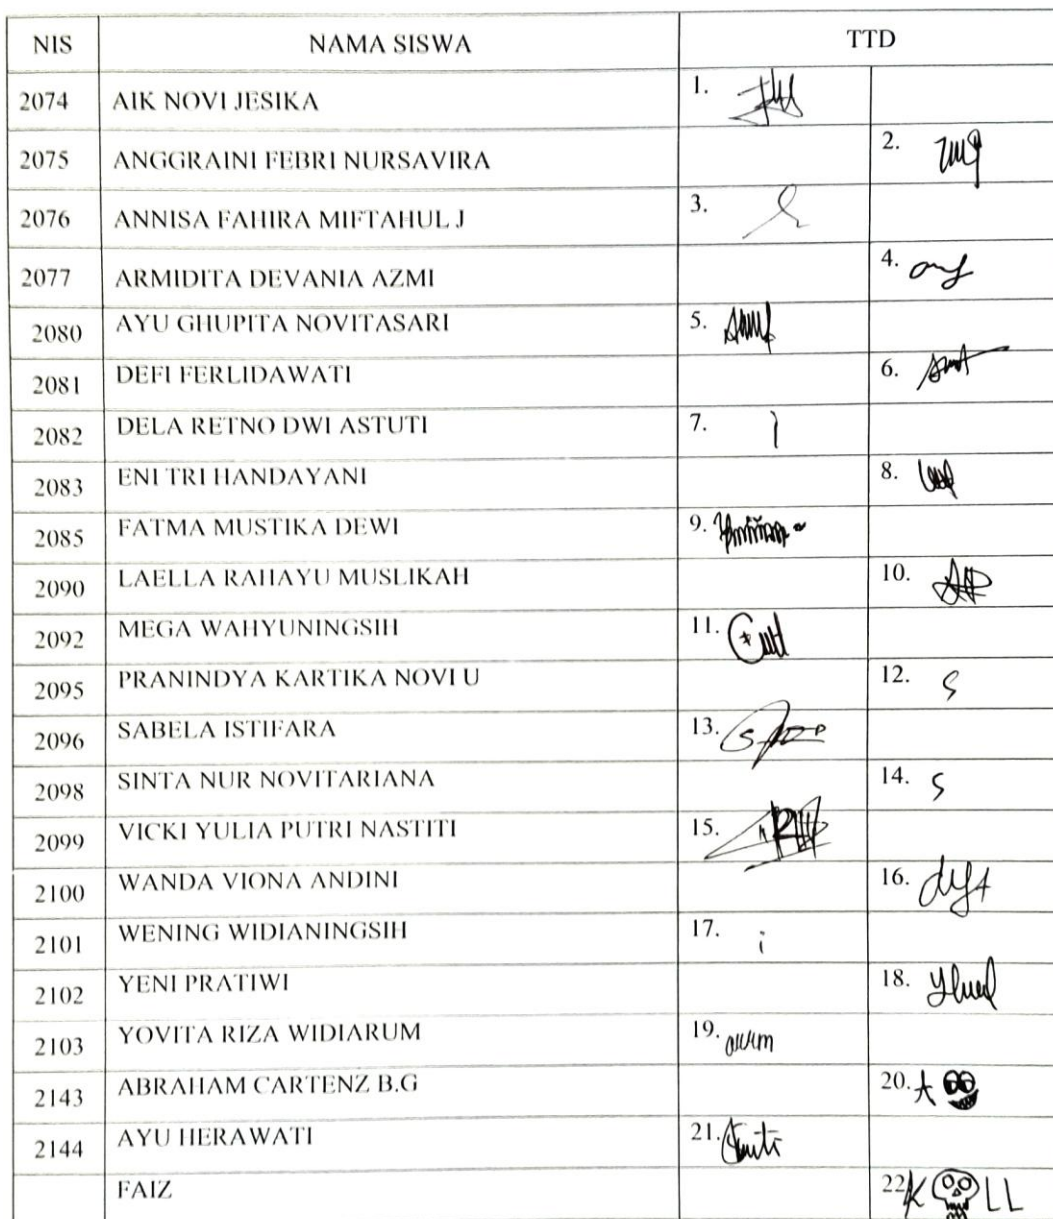 NIS NAMA SISWA TTD
2074 AIK NOVI JESIKA 1.
2075 ANGGRAINI FEBRI NURSAVIRA 2.
2076 ANNISA FAHIRA MIFTAHUL J 3.
2077 ARMIDITA DEVANIA AZMI 4.
2080 AYU GHUPITA NOVITASARI 5.
2081 DEFI FERLIDAWATI 6.
2082 DELA RETNO DWI ASTUTI 7.
2083 ENI TRI HANDAYANI 8.
2085 FATMA MUSTIKA DEWI 9.
2090 LAELLA RAHAYU MUSLIKAH 10.
2092 MEGA WAHYUNINGSIH 11.
2095 PRANINDYA KARTIKA NOVI U 12.
2096 SABELA ISTIFARA 13.
2098 SINTA NUR NOVITARIANA 14.
2099 VICKI YULIA PUTRI NASTITI 15.
2100 WANDA VIONA ANDINI 16.
2101 WENING WIDIANINGSIH 17.
2102 YENI PRATIWI 18.
2103 YOVITA RIZA WIDIARUM 19.
2143 ABRAHAM CARTENZ B.G 20.
2144 AYU HERAWATI 21.
FAIZ 22